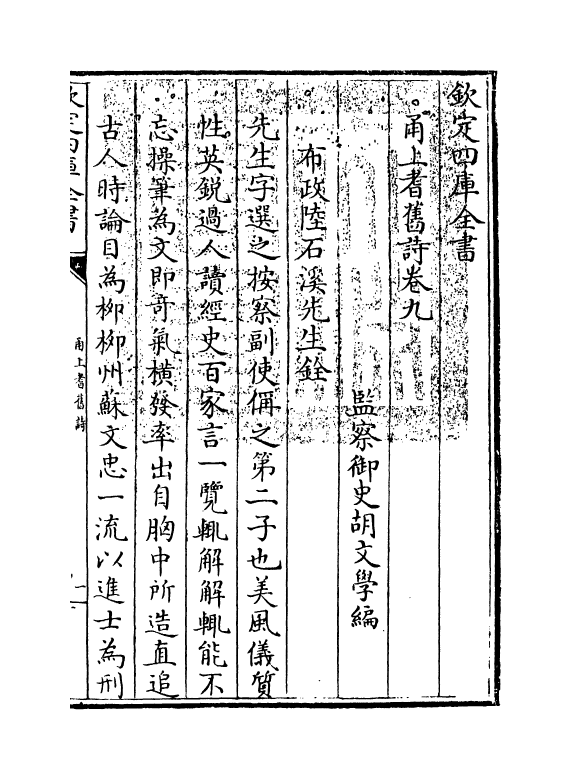 欽定四庫全書
甬上耆舊詩卷九
監察御史胡文學編
布政陸石溪先生銓
先生字選之按察副使偁之第二子也美風儀質
性英銳過人讀經史百家言一覽輒解解輒能不
忘操筆為文即竒氣橫發率出自胸中所造直追
古人時論目為柳柳州蘇文忠一流以進士為刑
欽定四庫全書
甬上耆舊詩
一